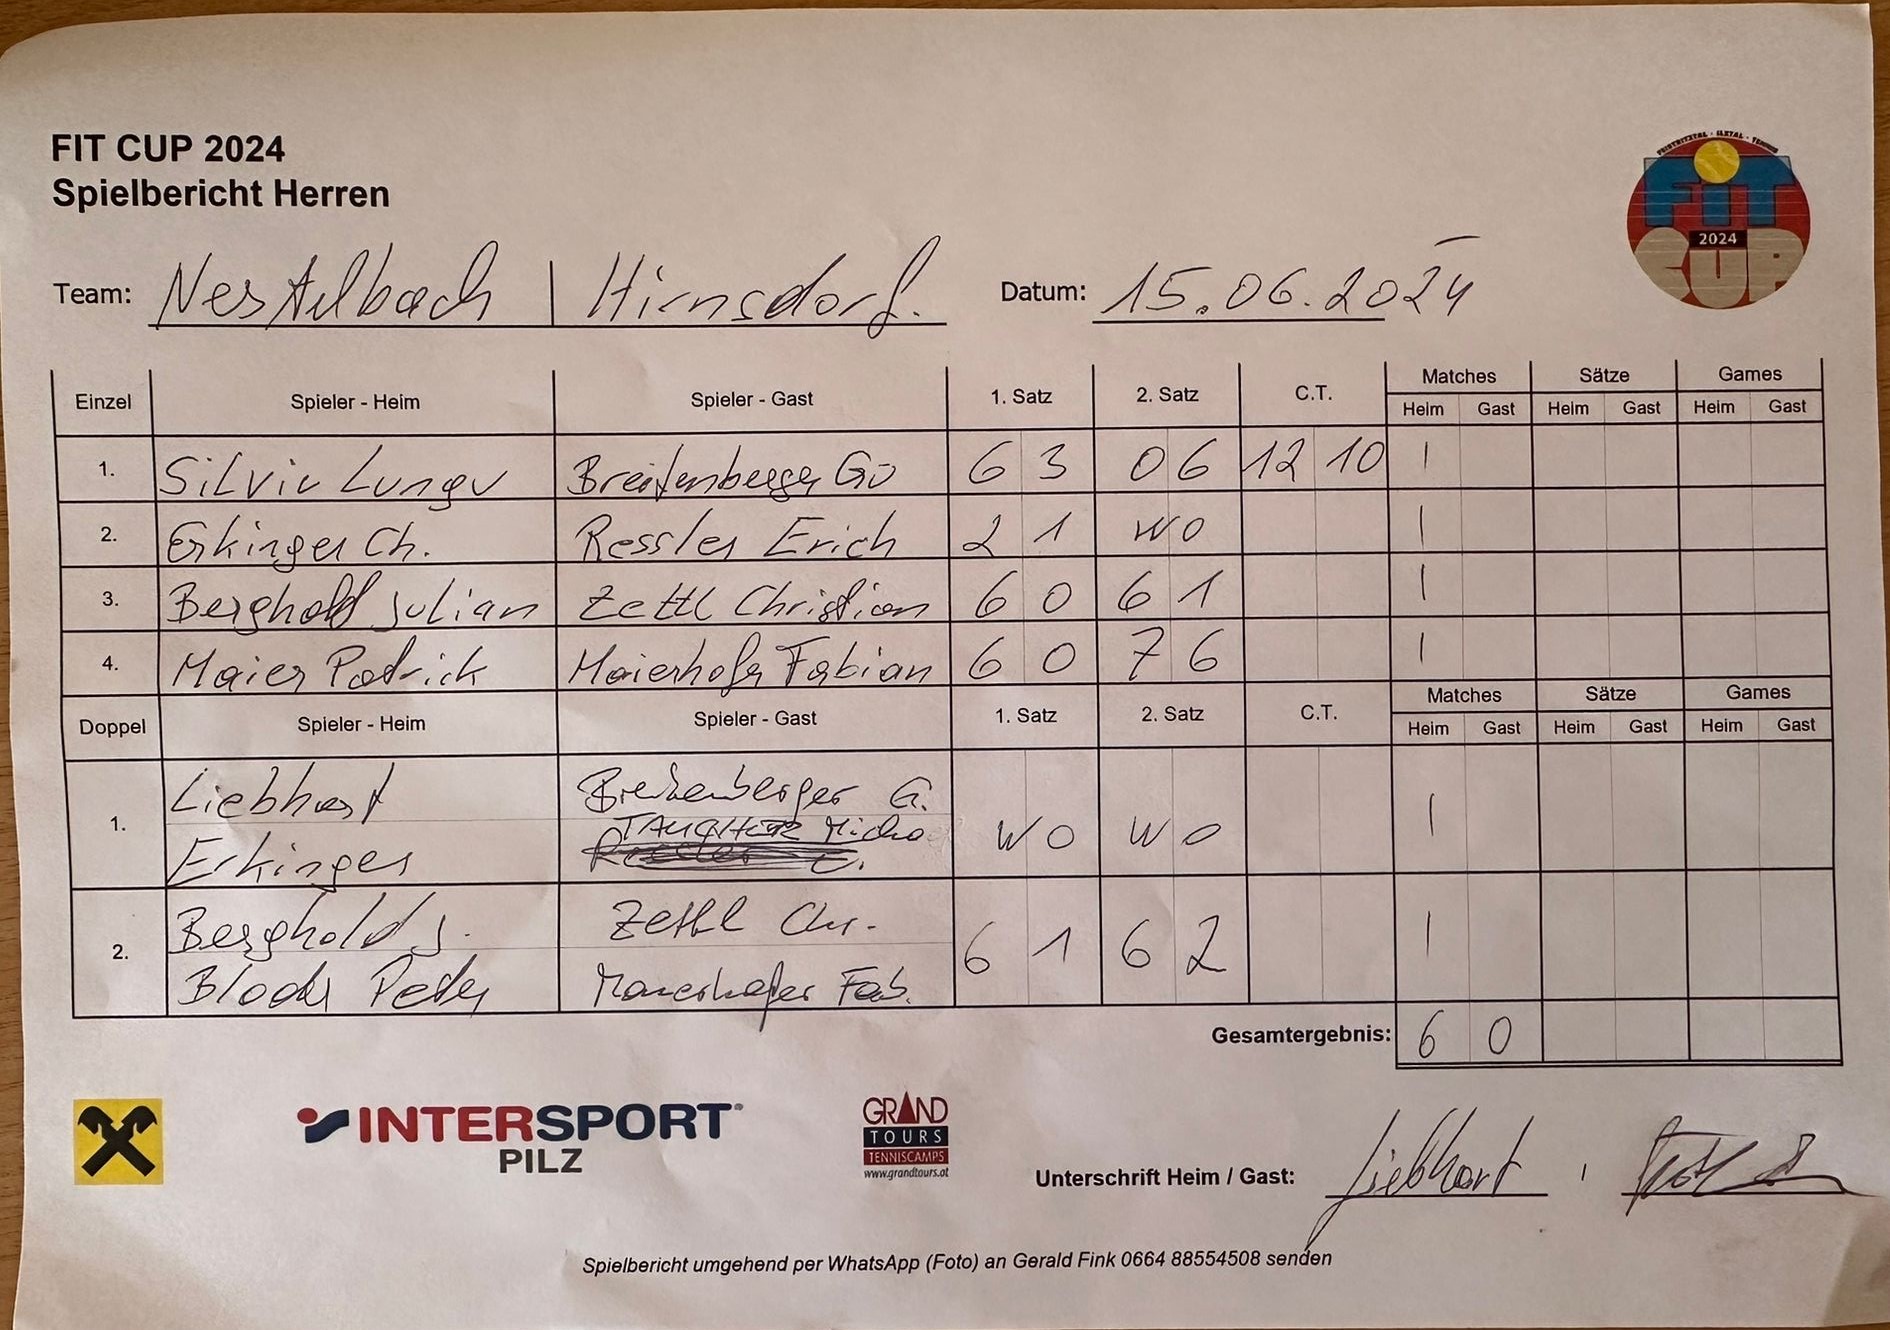 FIT CUP 2024
Spielbericht Herren
FRISTRITZTAL - ILZTAL - TENNIS
FIT
2024
CUP
Team: Nestelbach | Hirnsdorf. Datum: 15.06.2024
Einzel Spieler - Heim Spieler - Gast 1. Satz 2. Satz C.T. Matches Sätze Games
Heim Gast Heim Gast Heim Gast
1. Silviu Lungu Breitenberger Gü 6 3 0 6 12 10 1
2. Erkinger Ch. Ressler Erich 2 1 WO 1
3. Berghold Julian Zettl Christian 6 0 6 1 1
4. Maier Patrick Maierhofer Fabian 6 0 7 6 1
Doppel Spieler - Heim Spieler - Gast 1. Satz 2. Satz C.T. Matches Sätze Games
Heim Gast Heim Gast Heim Gast
Liebhart Breitenberger G.
1. Micha W O W O 1
Erkinger
Berghold J. Zettl Chr.
2. 6 1 6 2 1
Peter Maierhofer Fab.
Gesamtergebnis: 6 0
INTERSPORT
PILZ
GRAND
TOURS
TENNISCAMPS
www.grandtours.at
Unterschrift Heim / Gast: Liebhart
Spielbericht umgehend per WhatsApp (Foto) an Gerald Fink 0664 88554508 senden